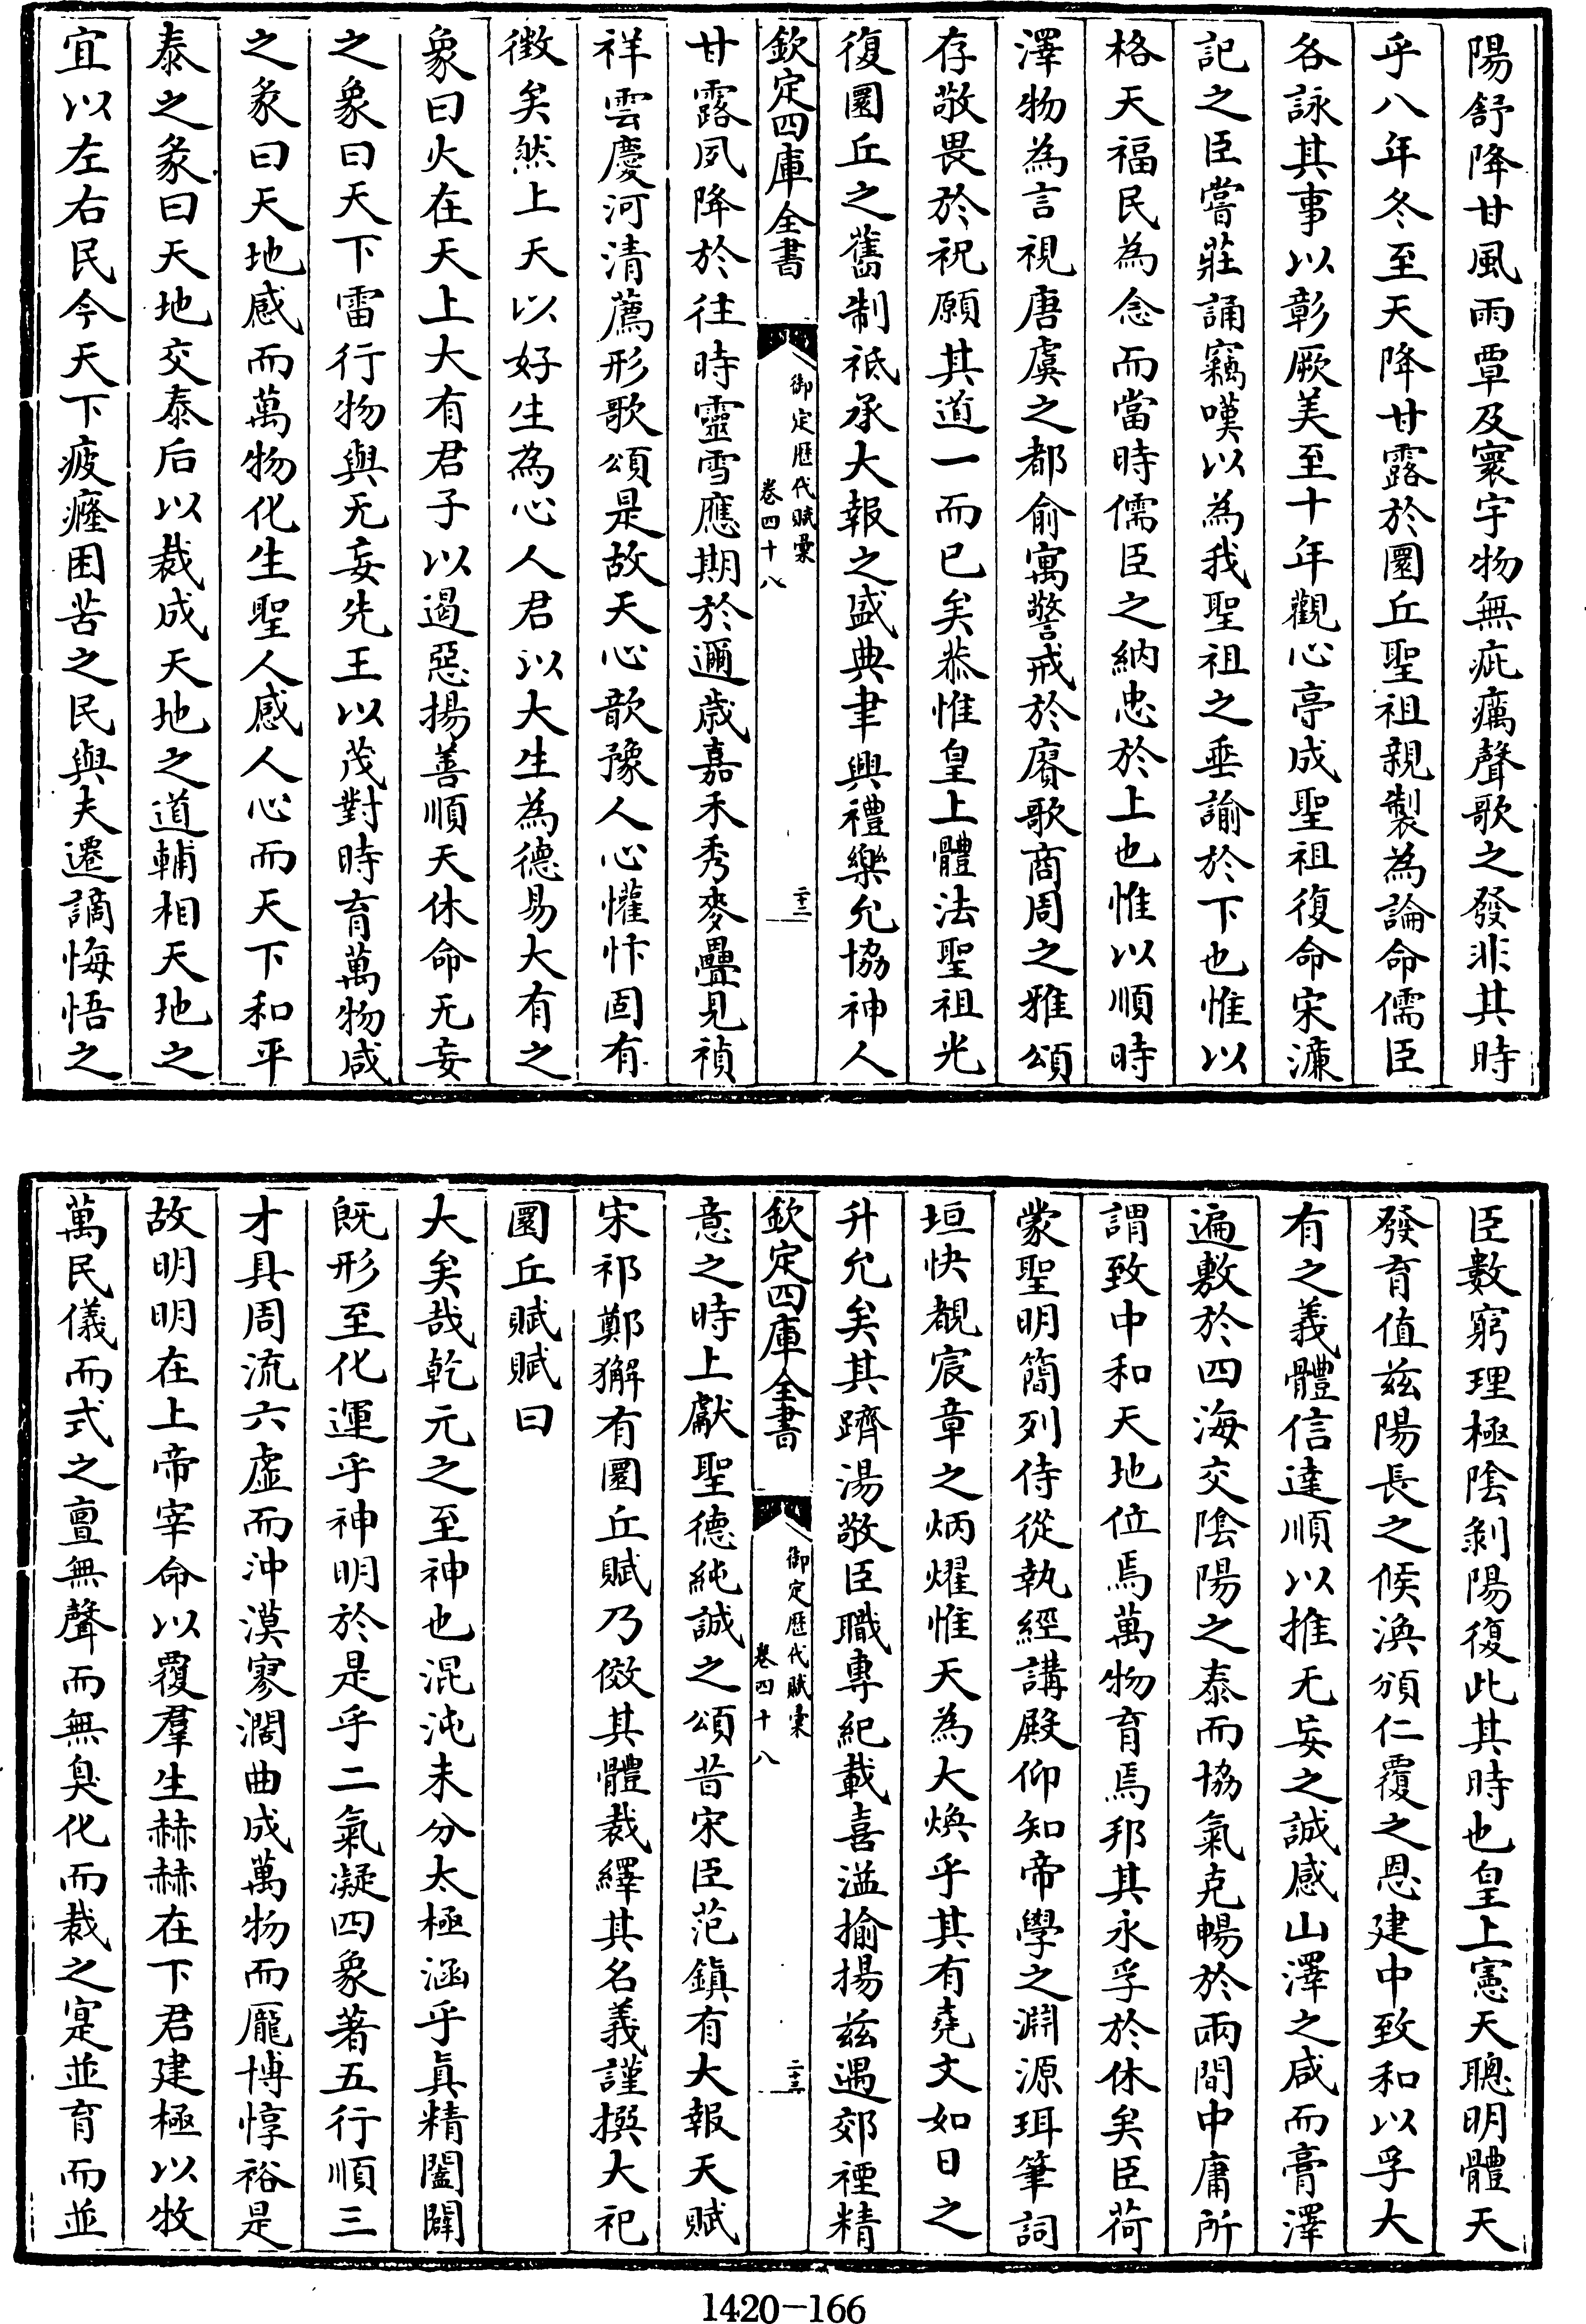 陽舒降甘風雨覃及寰宇物無疵癘聲歌之發非其時
乎八年冬至天降甘露於圜丘聖祖親製為論命儒臣
各詠其事以彰厥美至十年觀心亭成聖祖復命宋濂
記之臣嘗莊誦竊嘆以為我聖祖之垂諭於下也惟以
格天福民為念而當時儒臣之納忠於上也惟以順時
澤物為言視唐虞之都俞寓警戒於賡歌商周之雅頌
存敬畏於祝願其道一而已矣恭惟皇上體法聖祖光
復圜丘之舊制祗承大報之盛典聿興禮樂允協神人
欽定四庫全書
御定歴代賦彙
卷四十八
二十二
甘露夙降於往時靈雪應期於邇歲嘉禾秀麥疊見禎
祥雲慶河清薦形歌頌是故天心歆豫人心懽忭固有
徴矣然上天以好生為心人君以大生為德易大有之
象曰火在天上大有君子以遏惡揚善順天休命无妄
之象曰天下雷行物與无妄先王以茂對時育萬物咸
之彖曰天地感而萬物化生聖人感人心而天下和平
泰之彖曰天地交泰后以裁成天地之道輔相天地之
宜以左右民今天下疲癃困苦之民與夫遷謫悔悟之
臣數窮理極陰剝陽復此其時也皇上憲天聰明體天
發育值兹陽長之候渙頒仁覆之恩建中致和以孚大
有之義體信達順以推无妄之誠感山澤之咸而膏澤
遍敷於四海交陰陽之泰而協氣克暢於兩間中庸所
謂致中和天地位焉萬物育焉邦其永孚於休矣臣荷
蒙聖明簡列侍從執經講殿仰知帝學之淵源珥筆詞
垣快覩宸章之炳燿惟天為大煥乎其有堯文如日之
升允矣其躋湯敬臣職專紀載喜溢揄揚兹遇郊禋精
欽定四庫全書
御定歴代賦彙
卷四十八
二十三
意之時上獻聖德純誠之頌昔宋臣范鎮有大報天賦
宋祁鄭獬有圜丘賦乃倣其體裁繹其名義謹撰大祀
圜丘賦賦曰
大矣哉乾元之至神也混沌未分太極涵乎真精闔闢
既形至化運乎神明於是乎二氣凝四象著五行順三
才具周流六虛而沖漠寥濶曲成萬物而龐博惇裕是
故明明在上帝宰命以覆羣生赫赫在下君建極以牧
萬民儀而式之亶無聲而無臭化而裁之寔並育而並
1420-166